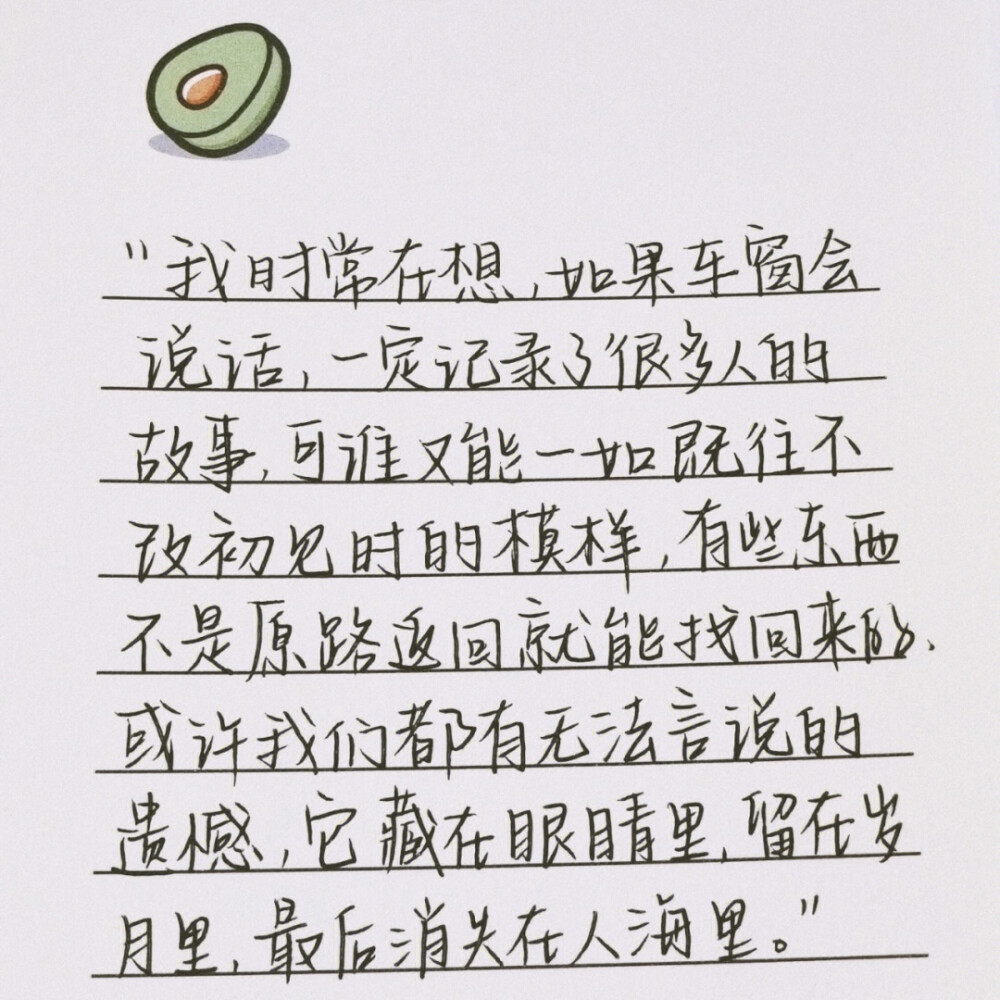 "我时常在想,如果车窗会
说话,一定记录了很多人的
故事,可谁又能一如既往不
改初见时的模样,有些东西
不是原路返回就能找回来的、
或许我们都有无法言说的
遗憾,它藏在眼睛里,留在岁
月里,最后消失在人海里。"